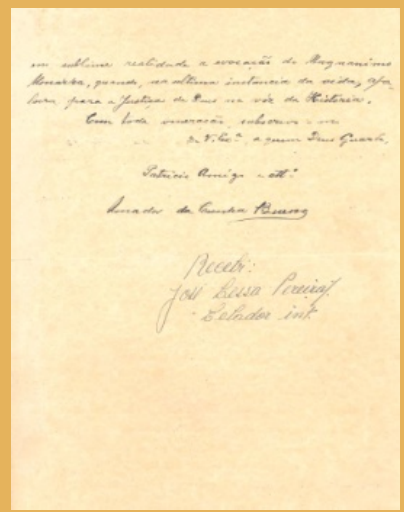 em sublime realidade a evocação do Magnanimo
Monarcha, quando, na ultima instancia da vida,
para a Justiça de Deus na vóz da Historia.
Com toda veneração, subscrevo-me
de V. Excª, a quem Deus Guarde,
Patricio Amigo e attº
Amador da Cunha Bueno
Recebi:
José Lessa Pereira
Zelador int.